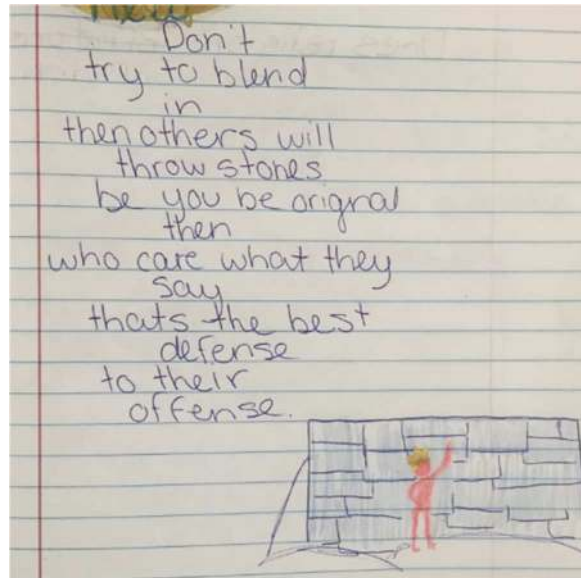 Don't
try to blend
in
then others will
throw stones
be you be original
then
who care what they
say
thats the best
defense
to their
offense.